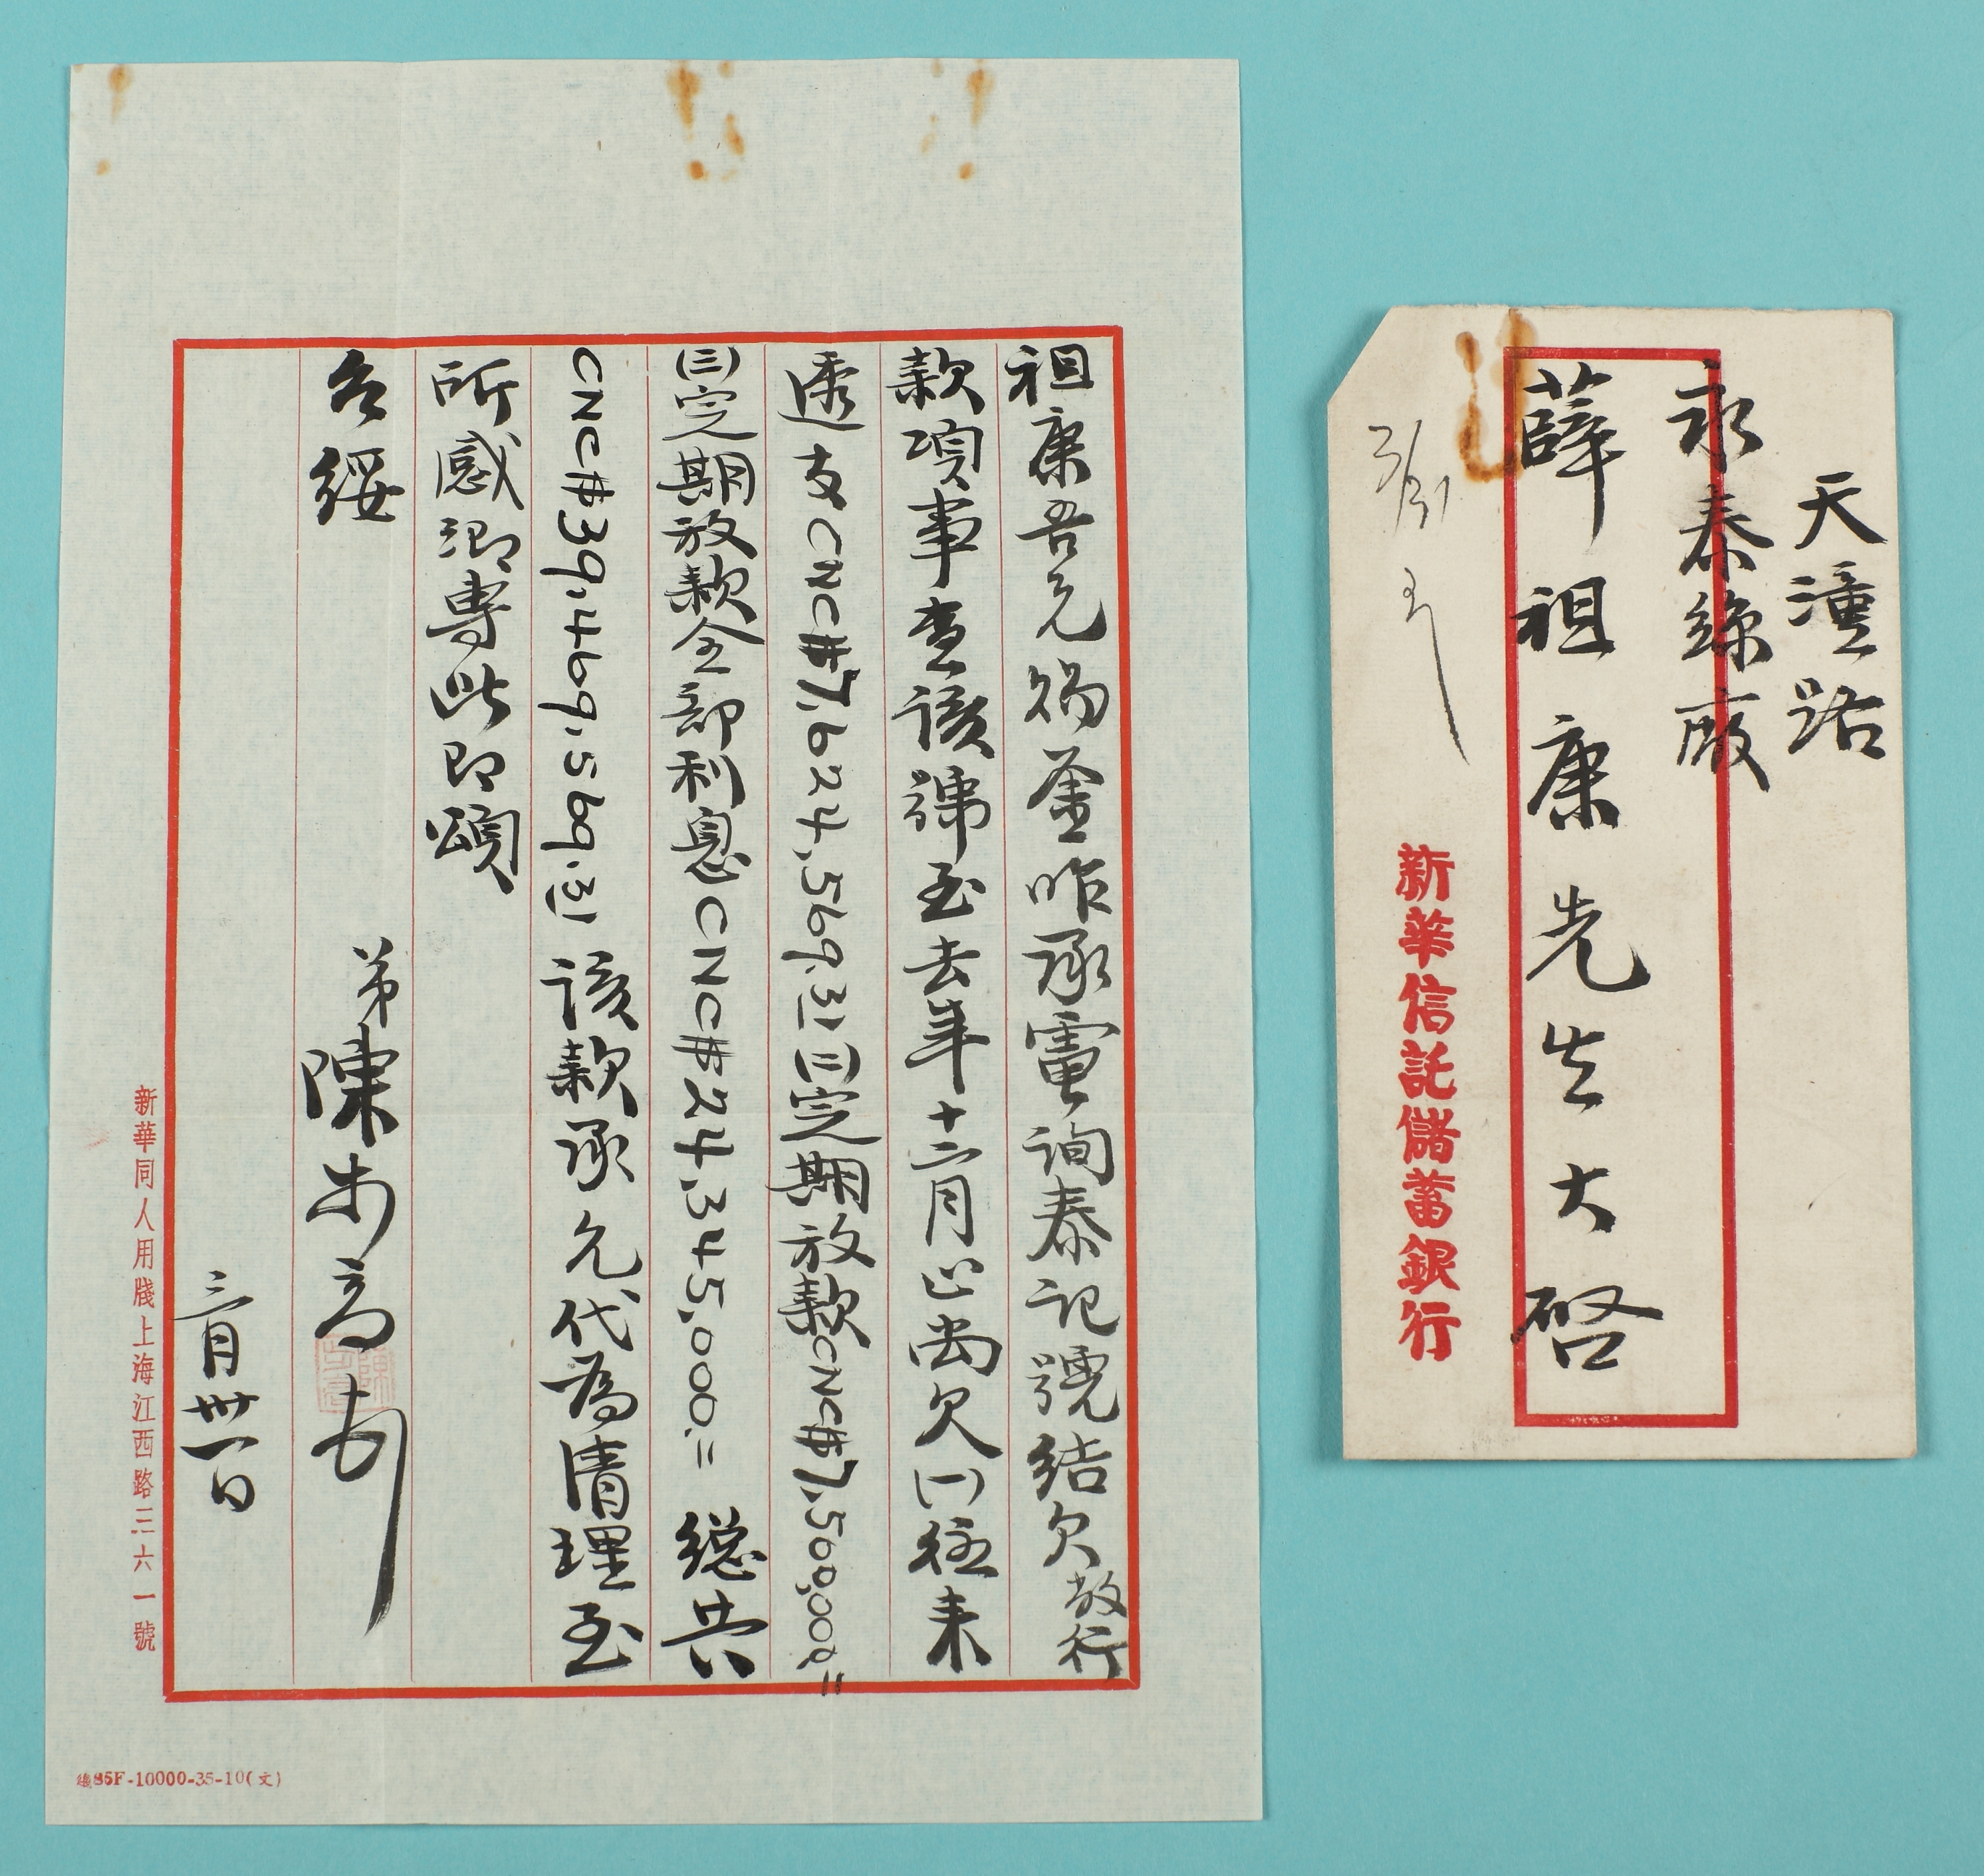 祖康吾兄賜鑒昨承電詢泰記號結欠敝行
款項事查該號至去年十二月止尚欠(一)往來
透支CNC#7,624,569.31(二)定期放款CNC#7,500,000.=
(三)定期放款全部利息CNC#24,345,000.=總共
CNC#39,469,569.31該款承允代為清理至
所感謝專此即頌
台綏
弟陳
三月卅一日
新華同人用牋上海江西路三六一號
總85F-10000-35-10(文)
天潼路
永泰絲廠
薛祖康先生大啓
新華信託儲蓄銀行
3/31